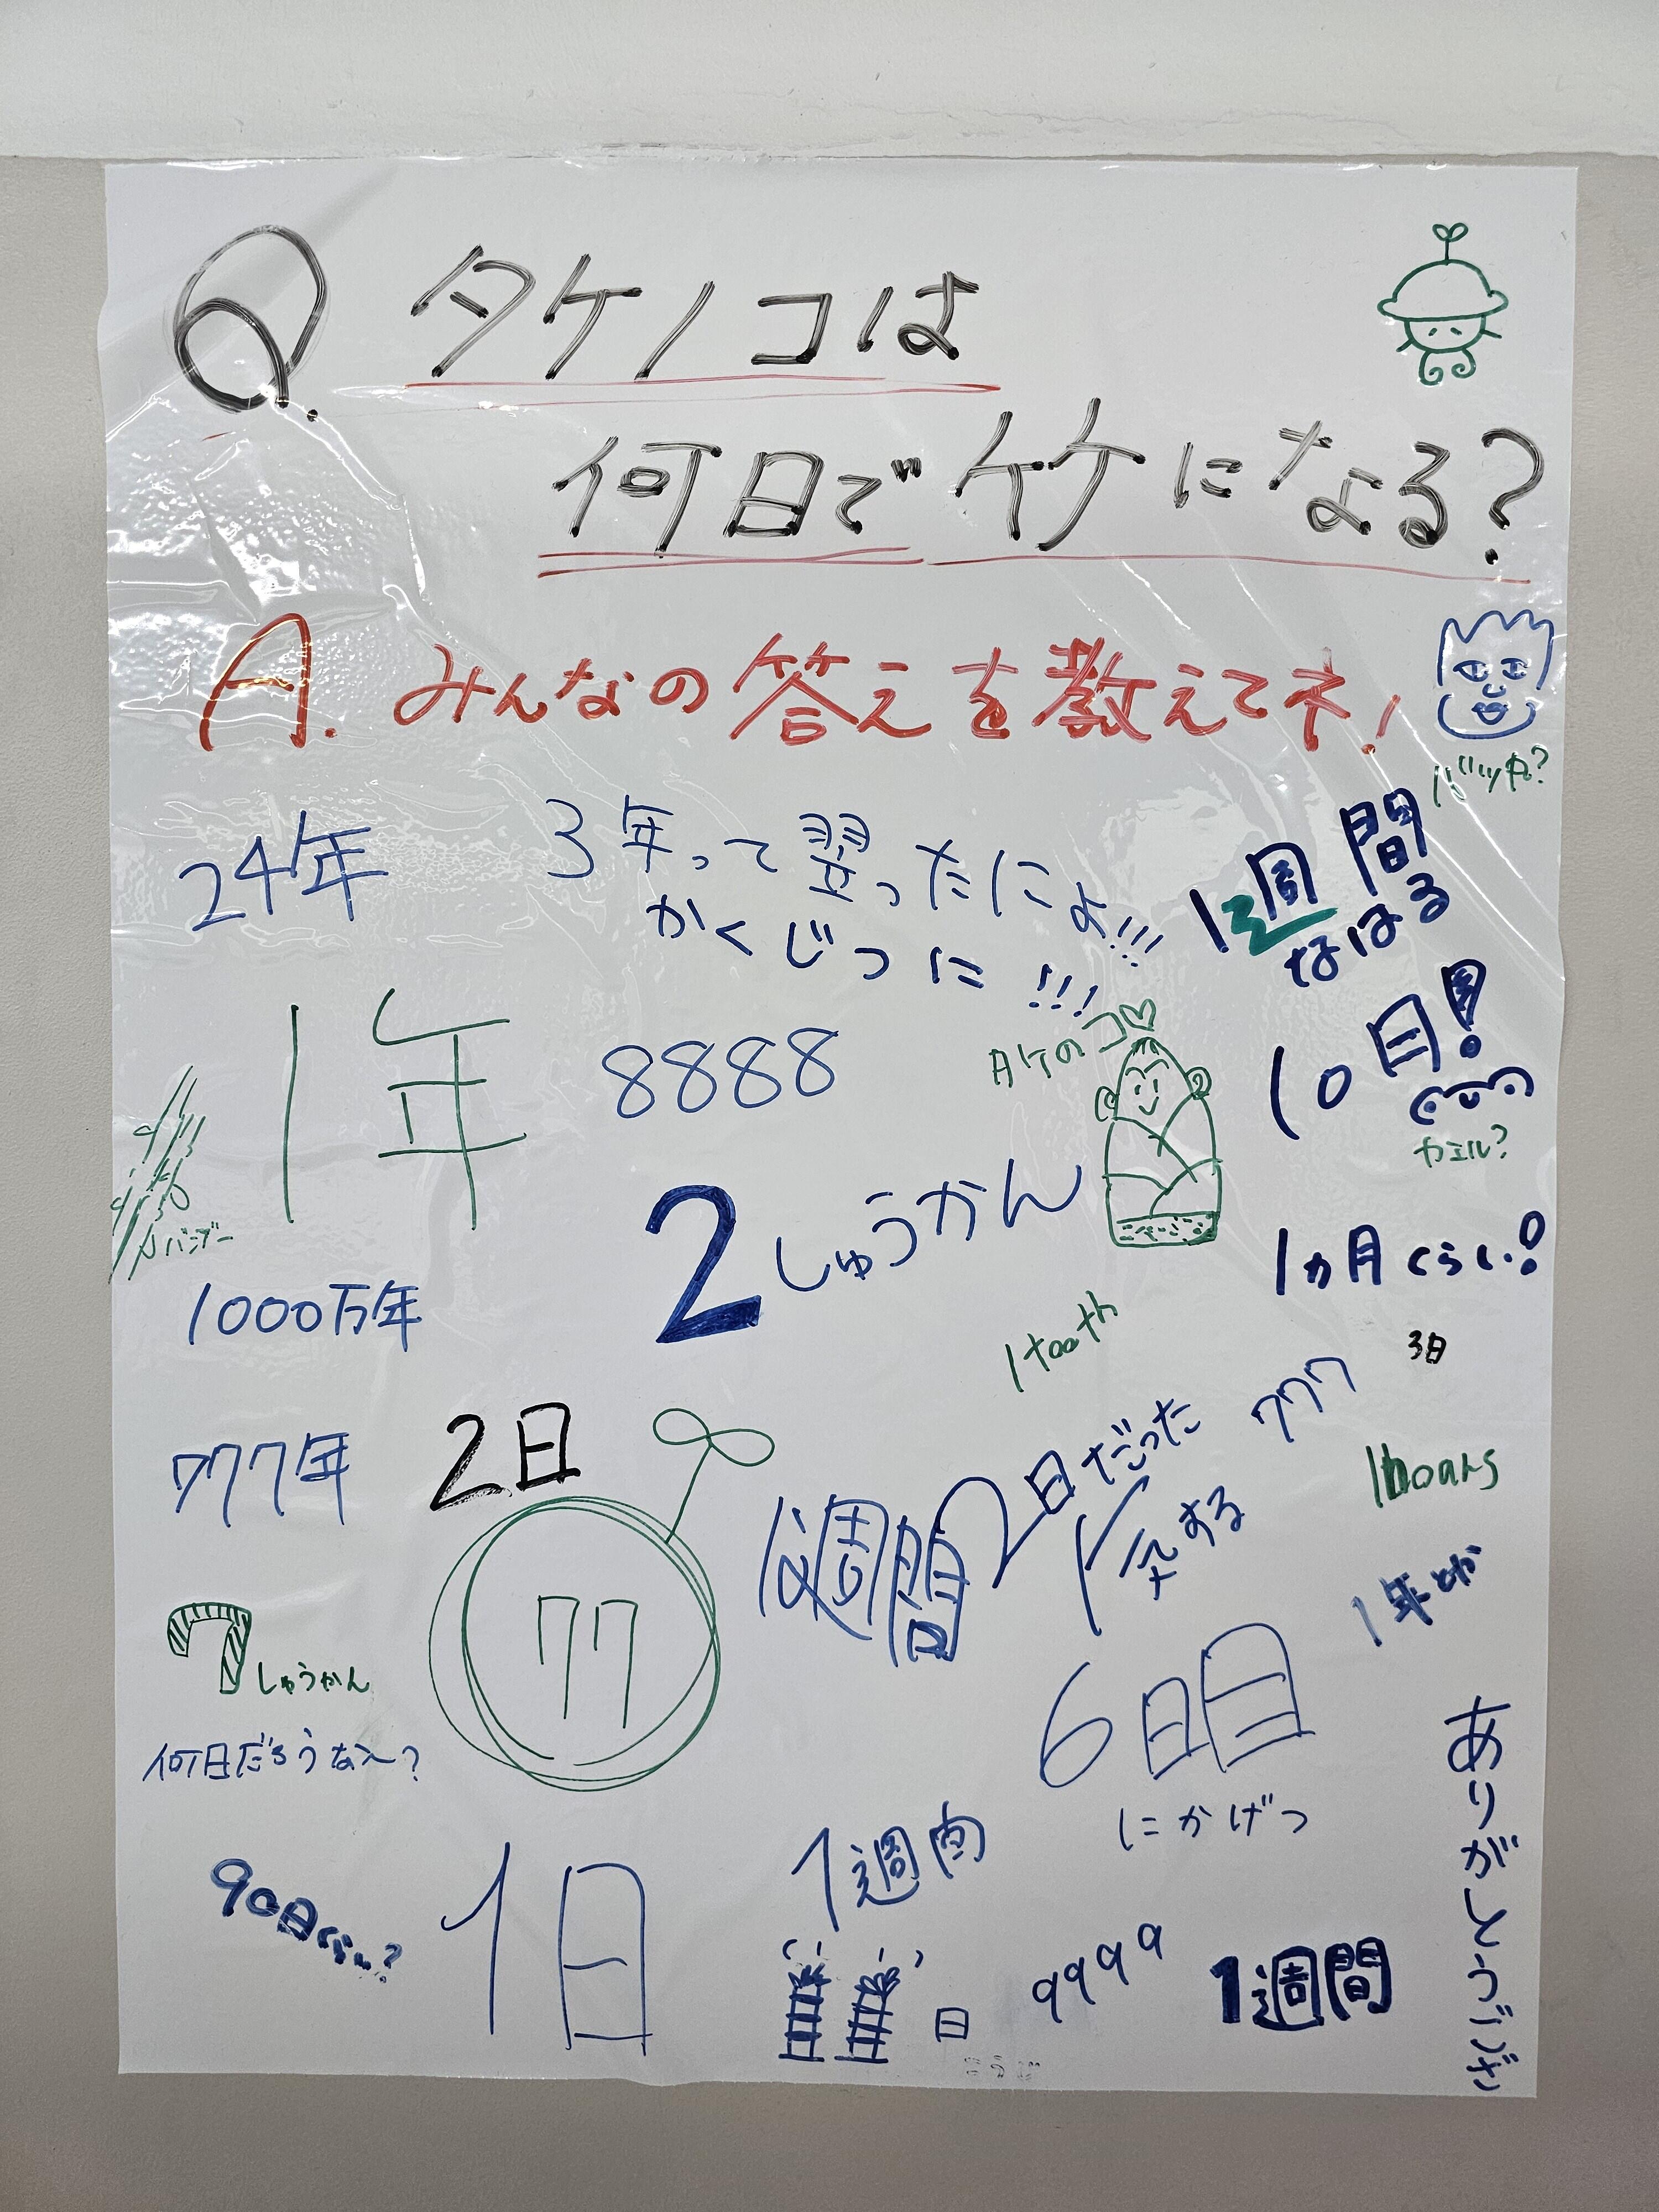 Q. タケノコは
何日で竹になる?
A. みんなの答えを教えてネ!
バッカ?
24年
3年って習ったにょ!!!
かくじつに!!!
1週間
なはる
1年
8888
タケのコ
10日!
カエル?
バンブー
2しゅうかん
1ヵ月くらい!
1000万年
1tooth
3日
777
777年
2日
2日だった
気する
1hoars
1週間
1年とか
77
7しゅうかん
6日目
何日だろうなぁ?
にかげつ
ありがとうござ
90日くらい?
1日
1週内
日
9999
1週間